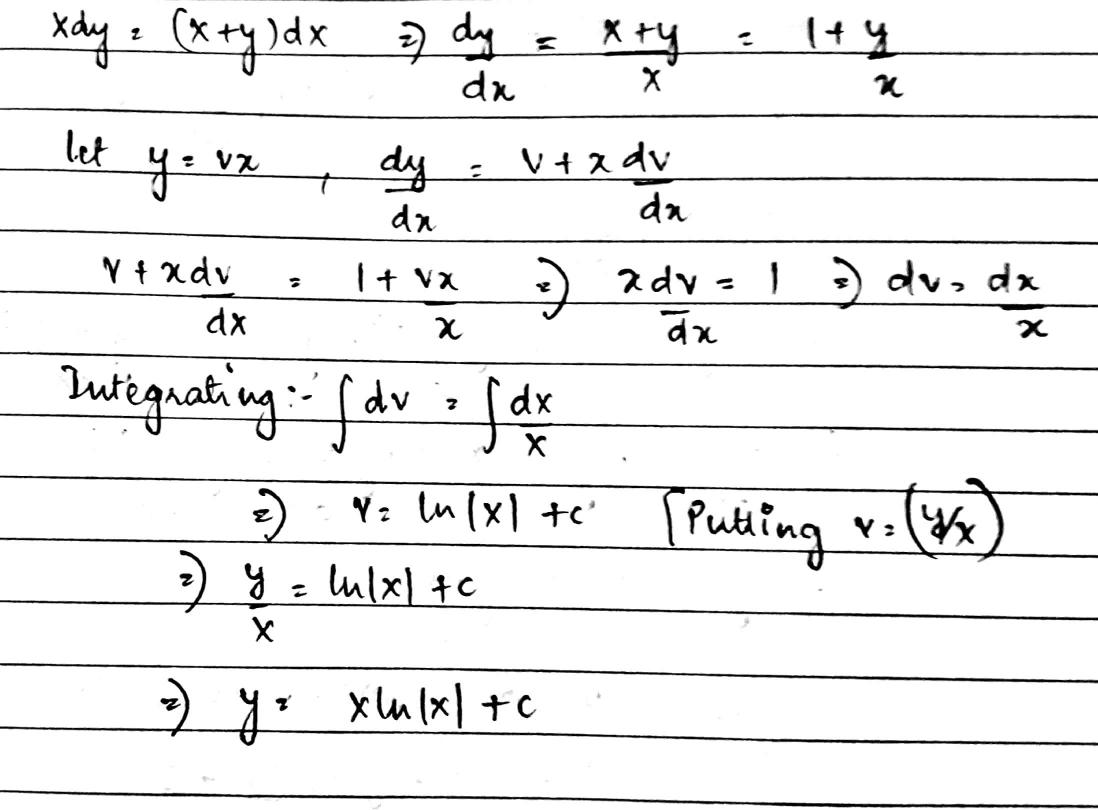 xdy = (x+y)dx ⇒ dy/dx = x+y/x = 1+y/x
let y = vx , dy/dx = v + x dv/dx
v + xdv/dx = 1 + vx/x ⇒ xdv/dx = 1 ⇒ dv = dx/x
Integrating:- ∫dv = ∫dx/x
⇒ v = ln|x| + c [Putting v = (y/x)
⇒ y/x = ln|x| + c
⇒ y = xln|x| + c